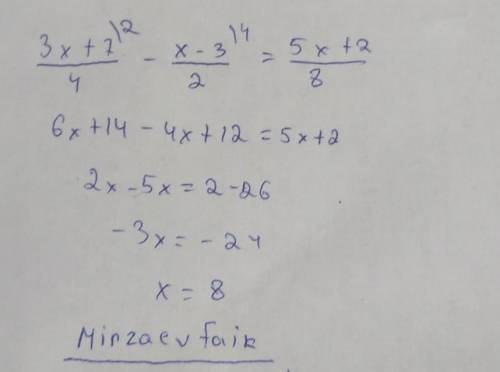 (3x+7)/4 \2 - (x-3)/2 \4 = (5x+2)/8
6x+14-4x+12=5x+2
2x-5x=2-26
-3x=-24
x=8
Mirzaev faik